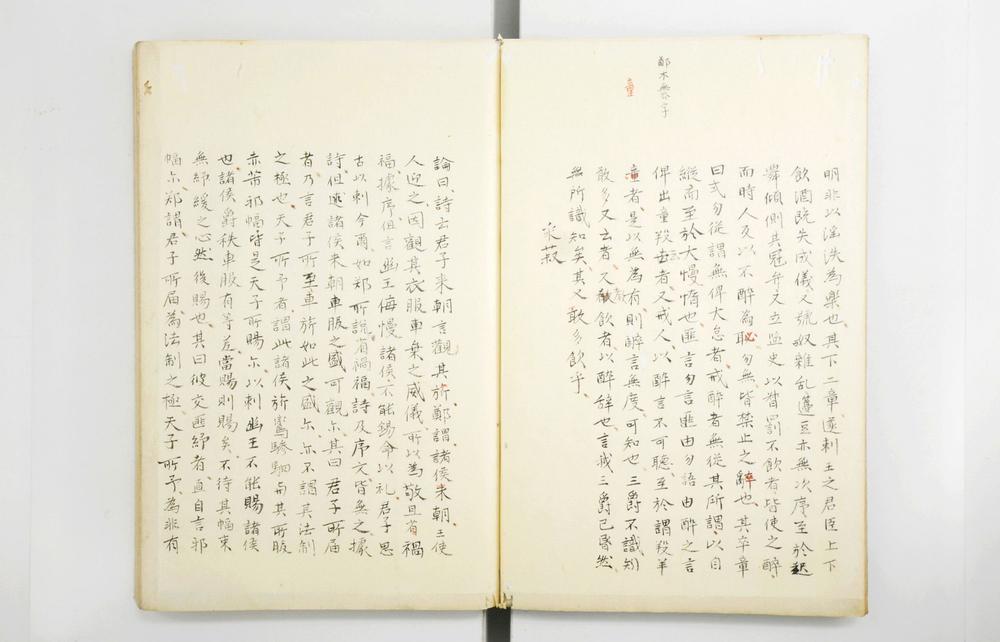 鄭木無字
童
明非以淫泆為樂也其下二章遂刺王之君臣上下
飲酒既失威儀又號呶雜乱籩豆亦無次序至於起
舞傾側其冠弁又立監史以督罰不飲者皆使之醉
而時人反以不醉為恥勿無皆禁止之辭也其卒章
曰式勿從謂無俾大怠者戒醉者無從其所謂以自
縱而至於大慢惰也匪言勿言匪由勿語由醉之言
俾出童羖者又戒人以醉言不可聽至於謂羖羊
童者是以無為有則醉言無度可知也三爵不識矧
敢多又云者又教飲者以醉辞也言我三爵已昏然
無所識知矣其又敢多飲乎
采菽
論曰詩云君子来朝言觀其旂鄭謂諸侯来朝王使
人迎之因觀其衣服車乗之威儀所以為敬且省禍
福據序但言幽王侮慢諸侯不能錫命以礼君子思
古以刺今爾如郑所說省禍福詩及序文皆無之據
詩但述諸侯来朝車服之盛可觀尓其曰君子所届
者乃言君子所至車旂如此之盛尓亦不謂其法制
之極也天子所予者謂此諸侯旂鸞驂駟与其所服
赤芾邪幅皆是天子所賜尓以刺幽王不能賜諸侯
也諸侯爵秩車服有等差當賜則賜矣不待其幅束
無紓緩之心然後賜也其曰彼交匪紓者直自言邪
幅尓郑謂君子所届為法制之極天子所予為非有